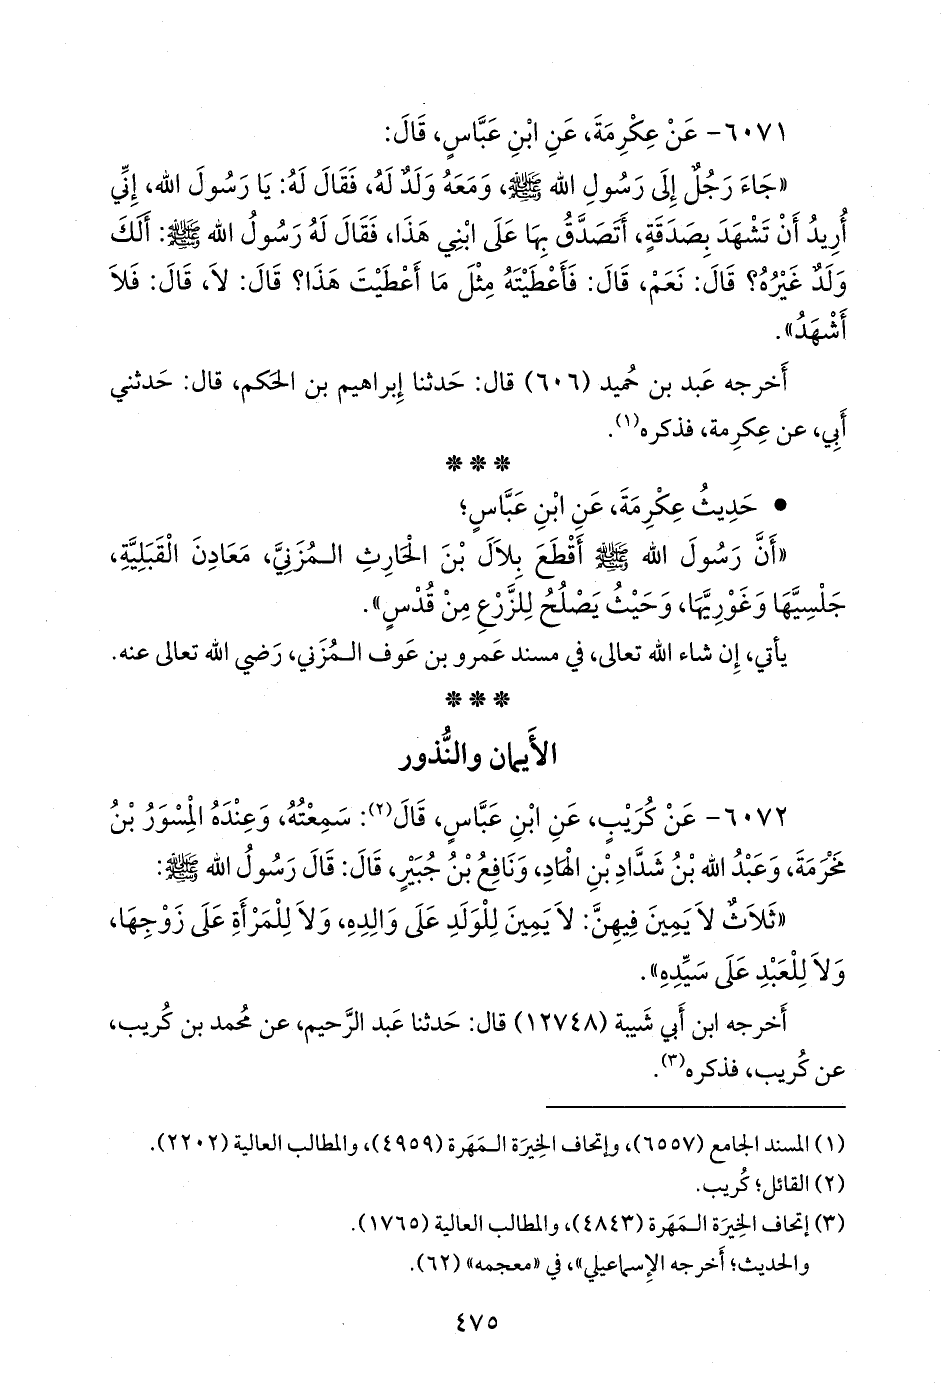 ٦٠٧١- عَنْ عِكْرِمَةَ، عَنِ ابْنِ عَبَّاسٍ، قَالَ:
«جَاءَ رَجُلٌ إِلَى رَسُولِ الله ﷺ، وَمَعَهُ وَلَدٌ لَهُ، فَقَالَ لَهُ: يَا رَسُولَ الله، إِنِّي
أُرِيدُ أَنْ تَشْهَدَ بِصَدَقَةٍ، أَتَصَدَّقُ بِهَا عَلَى ابْنِي هَذَا، فَقَالَ لَهُ رَسُولُ الله ﷺ: أَلَكَ
وَلَدٌ غَيْرُهُ؟ قَالَ: نَعَمْ، قَالَ: فَأَعْطَيْتَهُ مِثْلَ مَا أَعْطَيْتَ هَذَا؟ قَالَ: لاَ، قَالَ: فَلاَ
أَشْهَدُ».
أَخرجه عَبد بن حُميد (٦٠٦) قال: حَدثنا إِبراهيم بن الحَكم، قال: حَدثني
أَبِي، عن عِكرِمة، فذكره(١).
* * *
• حَدِيثُ عِكْرِمَةَ، عَنِ ابْنِ عَبَّاسٍ؛
«أَنَّ رَسُولَ الله ﷺ أَقْطَعَ بِلاَلَ بْنَ الْحَارِثِ الـمُزَنِيَّ، مَعَادِنَ الْقَبَلِيَّةِ،
جَلْسِيَّهَا وَغَوْرِيَّهَا، وَحَيْثُ يَصْلُحُ لِلزَّرْعِ مِنْ قُدْسٍ».
يأتي، إِن شاء الله تعالى، في مسند عَمرو بن عَوف الـمُزَني، رَضي الله تعالى عنه.
* * *
الأَيمان والنُّذور
٦٠٧٢- عَنْ كُرَيْبٍ، عَنِ ابْنِ عَبَّاسٍ، قَالَ(٢): سَمِعْتُهُ، وَعِنْدَهُ الْمِسْوَرُ بْنُ
مَخْرَمَةَ، وَعَبْدُ الله بْنُ شَدَّادِ بْنِ الْهَادِ، وَنَافِعُ بْنُ جُبَيْرٍ، قَالَ: قَالَ رَسُولُ الله ﷺ:
«ثَلاَثٌ لاَ يَمِينَ فِيهِنَّ: لاَ يَمِينَ لِلْوَلَدِ عَلَى وَالِدِهِ، وَلاَ لِلْمَرْأَةِ عَلَى زَوْجِهَا،
وَلاَ لِلْعَبْدِ عَلَى سَيِّدِهِ».
أَخرجه ابن أَبي شَيبة (١٢٧٤٨) قال: حَدثنا عَبد الرَّحيم، عن مُحمد بن كُريب،
عن كُريب، فذكره(٣).
(١) المسند الجامع (٦٥٥٧)، وإتحاف الخِيرَة الـمَهَرة (٤٩٥٩)، والمطالب العالية (٢٢٠٢).
(٢) القائل؛ كُريب.
(٣) إتحاف الخِيرَة الـمَهَرة (٤٨٤٣)، والمطالب العالية (١٧٦٥).
والحديث؛ أخرجه الإسماعيلي»، في «معجمه» (٦٢).
٤٧٥